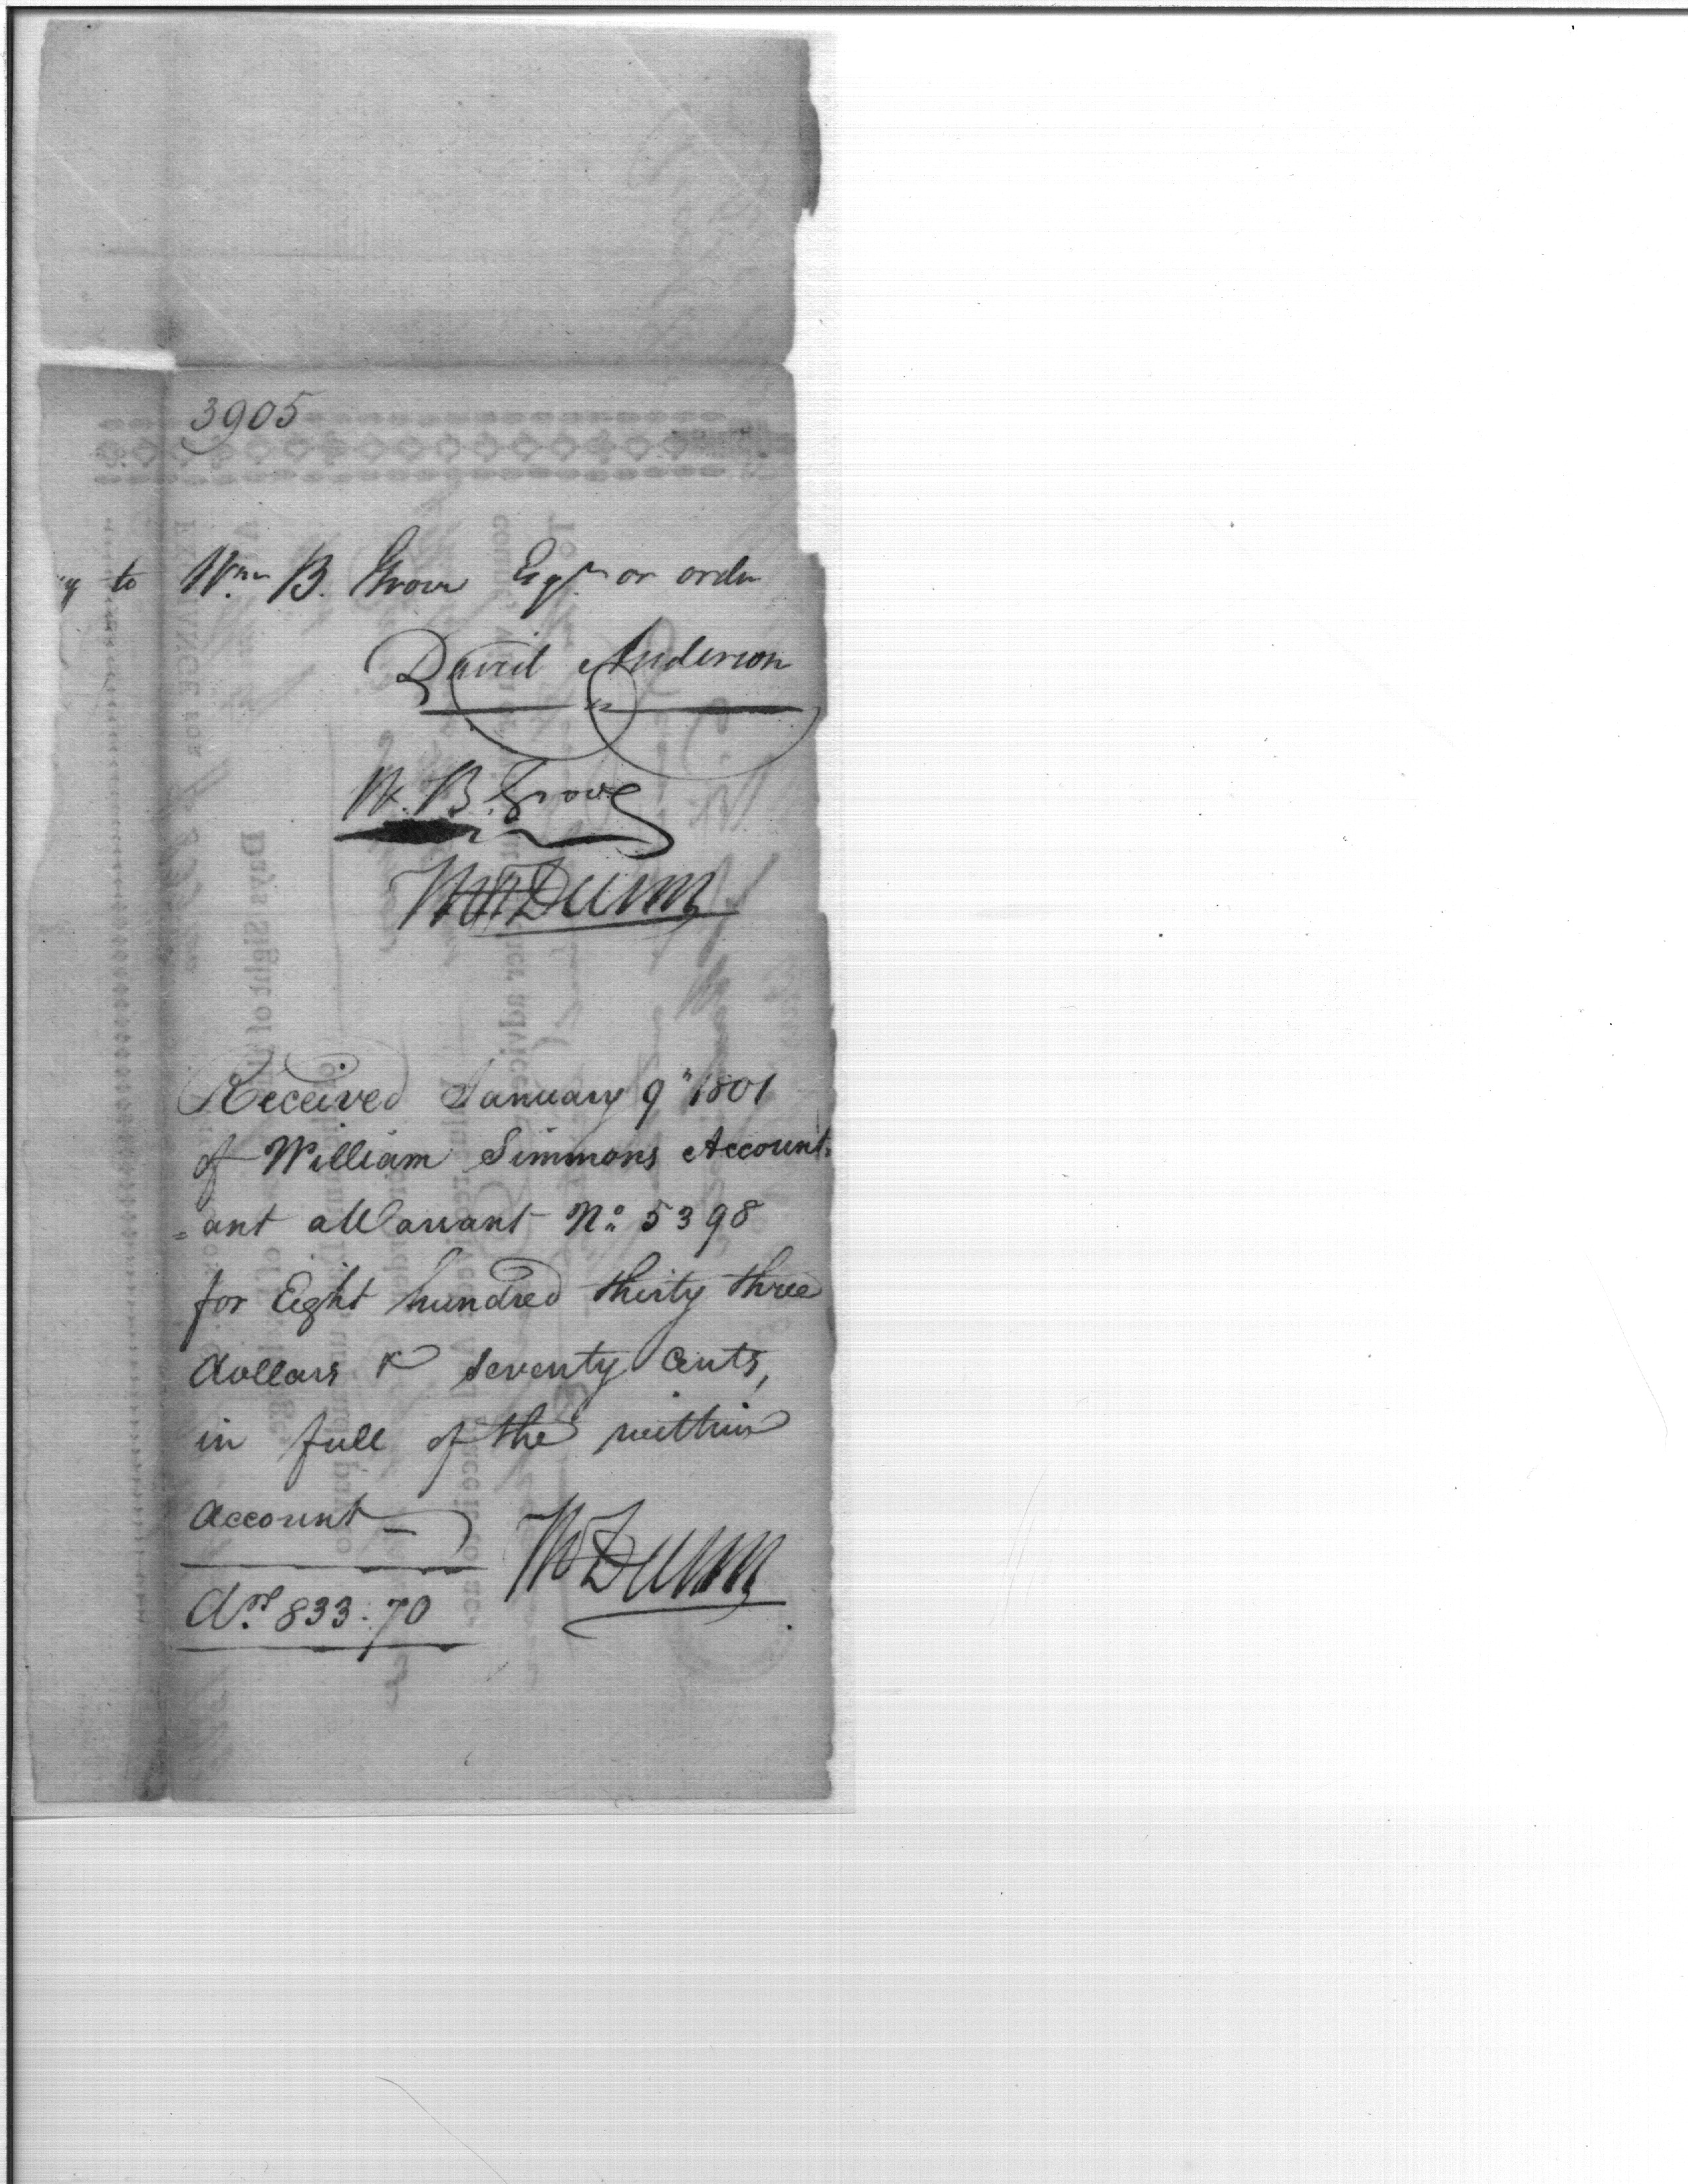 3905
y to Wm B. Grove Esqr or order
David Anderson
W. B. Grove
Wm Dunn
Received January 9" 1801
of William Simmons Account
=ant a Warrant No 5398
for Eight hundred thirty three
dollars & seventy Cents,
in full of the within
Account
Drs 833.70
Wm Dunn